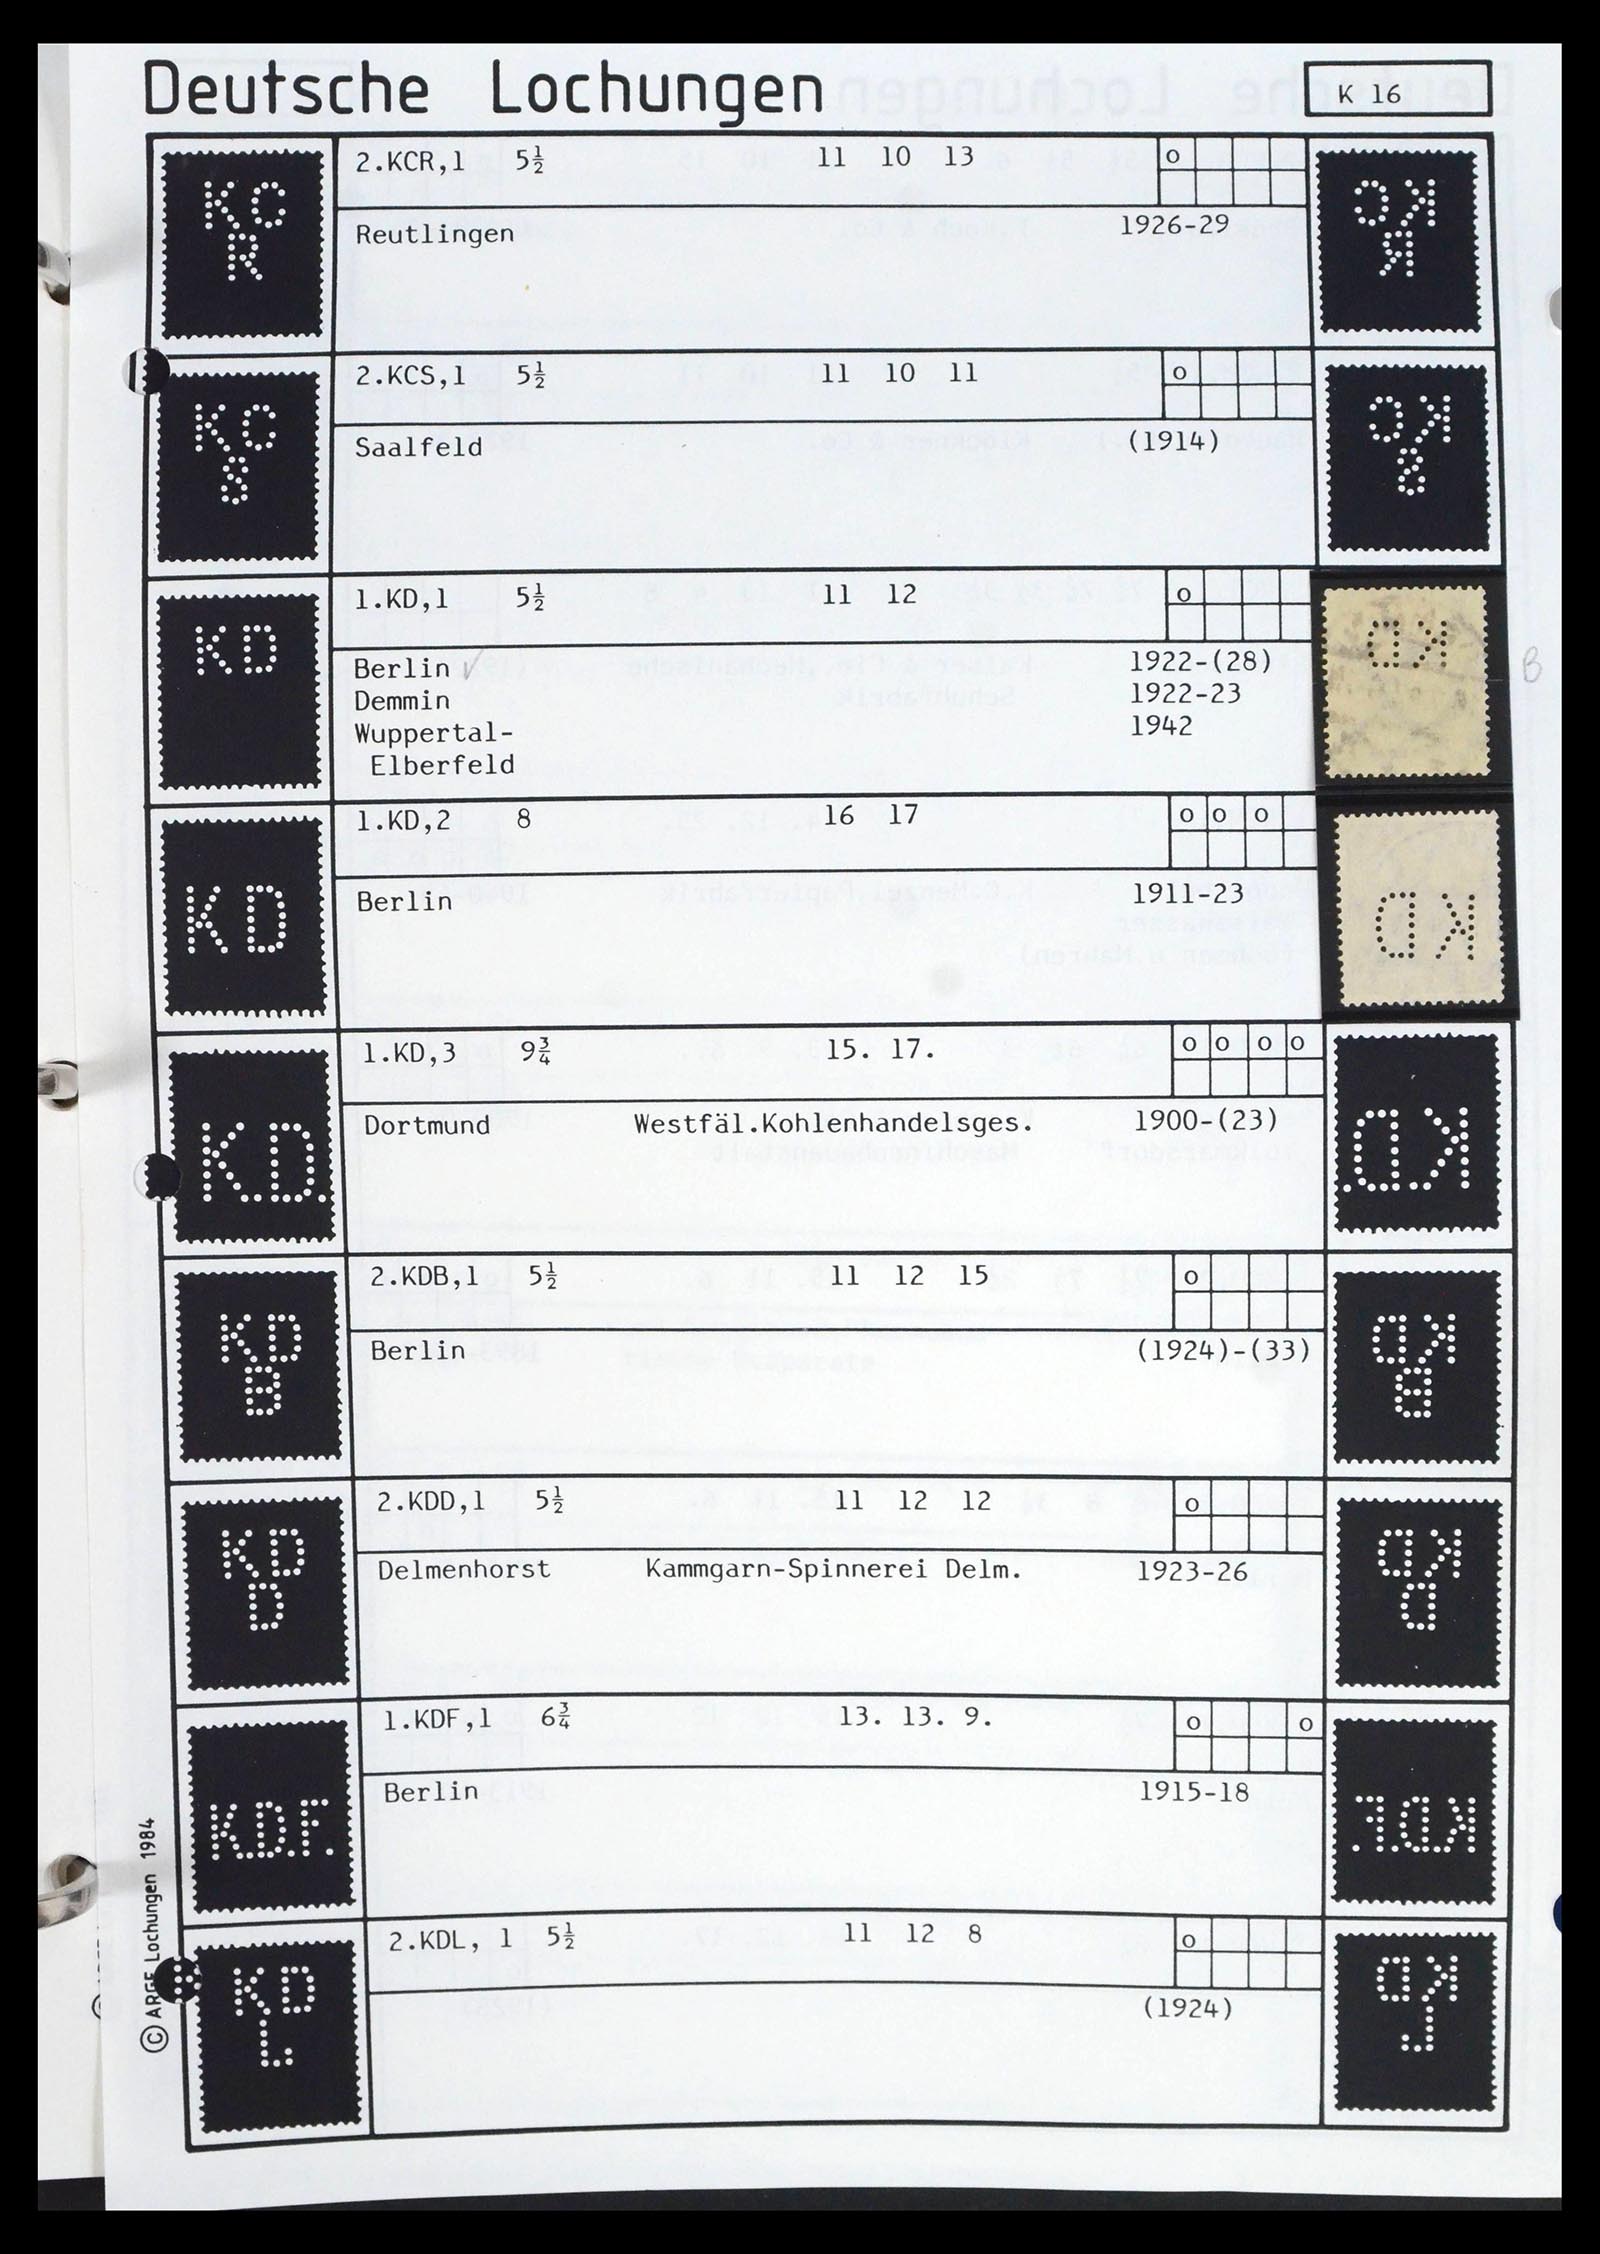 Deutsche Lochungen
K 16
KC
R
2.KCR,1 5½ 11 10 13 o
Reutlingen 1926-29
KC
S
2.KCS,1 5½ 11 10 11 o
Saalfeld (1914)
KD
1.KD,1 5½ 11 12 o
Berlin ✓ 1922-(28)
B
Demmin 1922-23
Wuppertal- 1942
Elberfeld
KD
1.KD,2 8 16 17 o o o
Berlin 1911-23
K.D.
1.KD,3 9¾ 15. 17. o o o o
Dortmund Westfäl.Kohlenhandelsges. 1900-(23)
KD
B
2.KDB,1 5½ 11 12 15 o
Berlin (1924)-(33)
KD
D
2.KDD,1 5½ 11 12 12 o
Delmenhorst Kammgarn-Spinnerei Delm. 1923-26
K.D.F.
1.KDF,1 6¾ 13. 13. 9. o o
Berlin 1915-18
KD
L
2.KDL, 1 5½ 11 12 8 o
(1924)
© ARGE Lochungen 1984